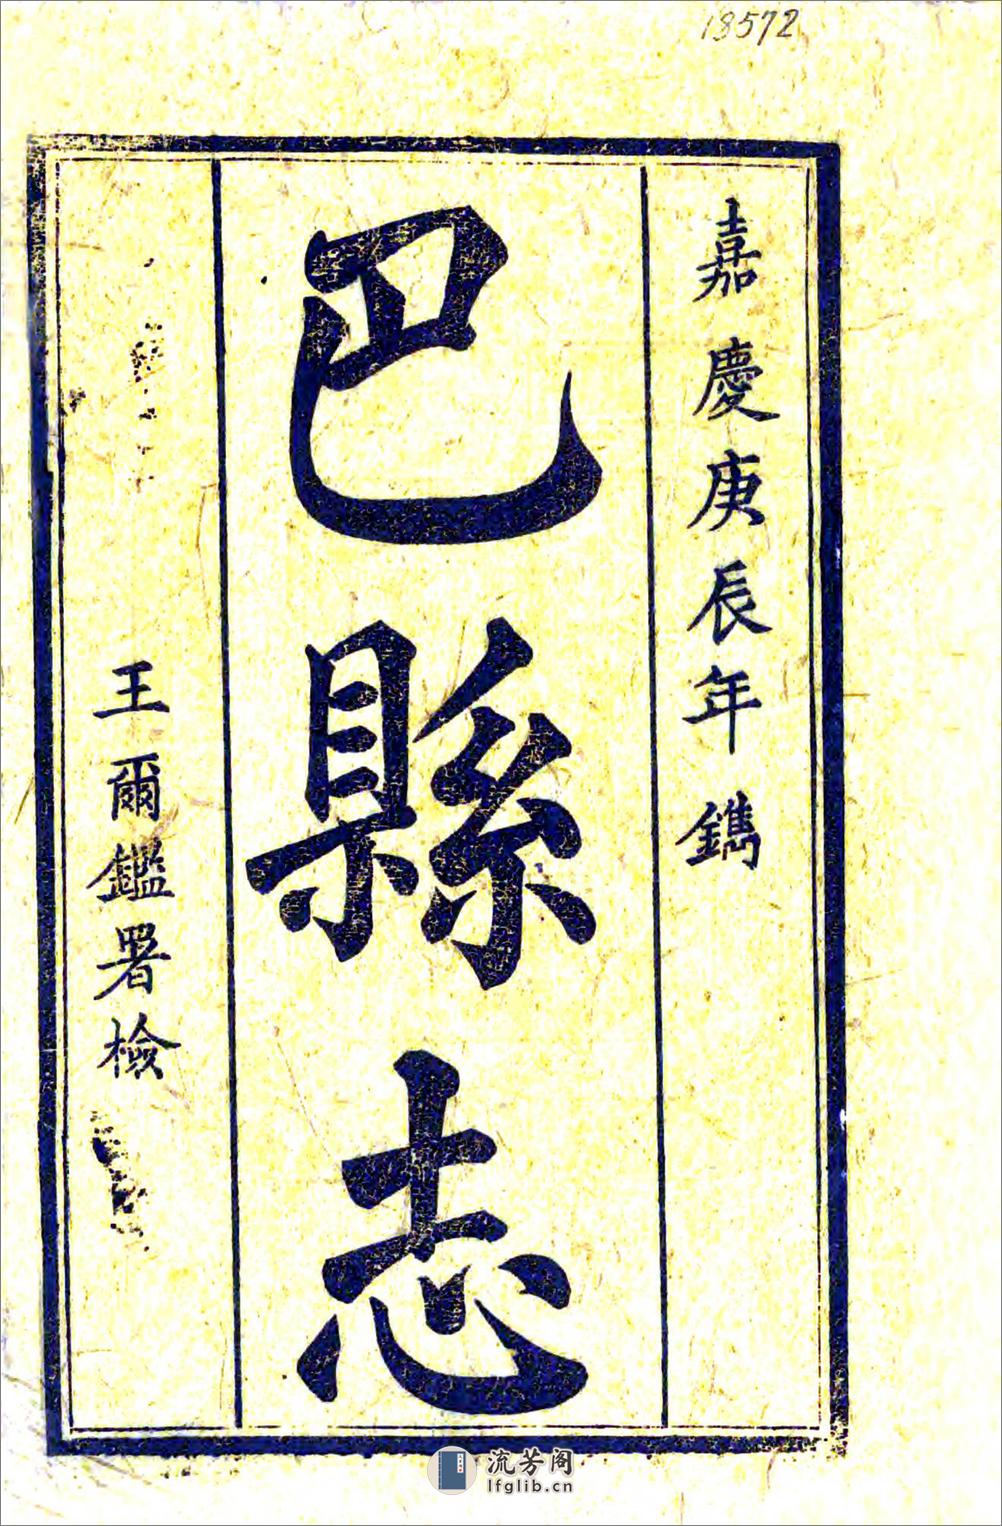 18572
嘉慶庚辰年鐫
巴縣志
王爾鑑署檢
流芳阁
lfglib.cn